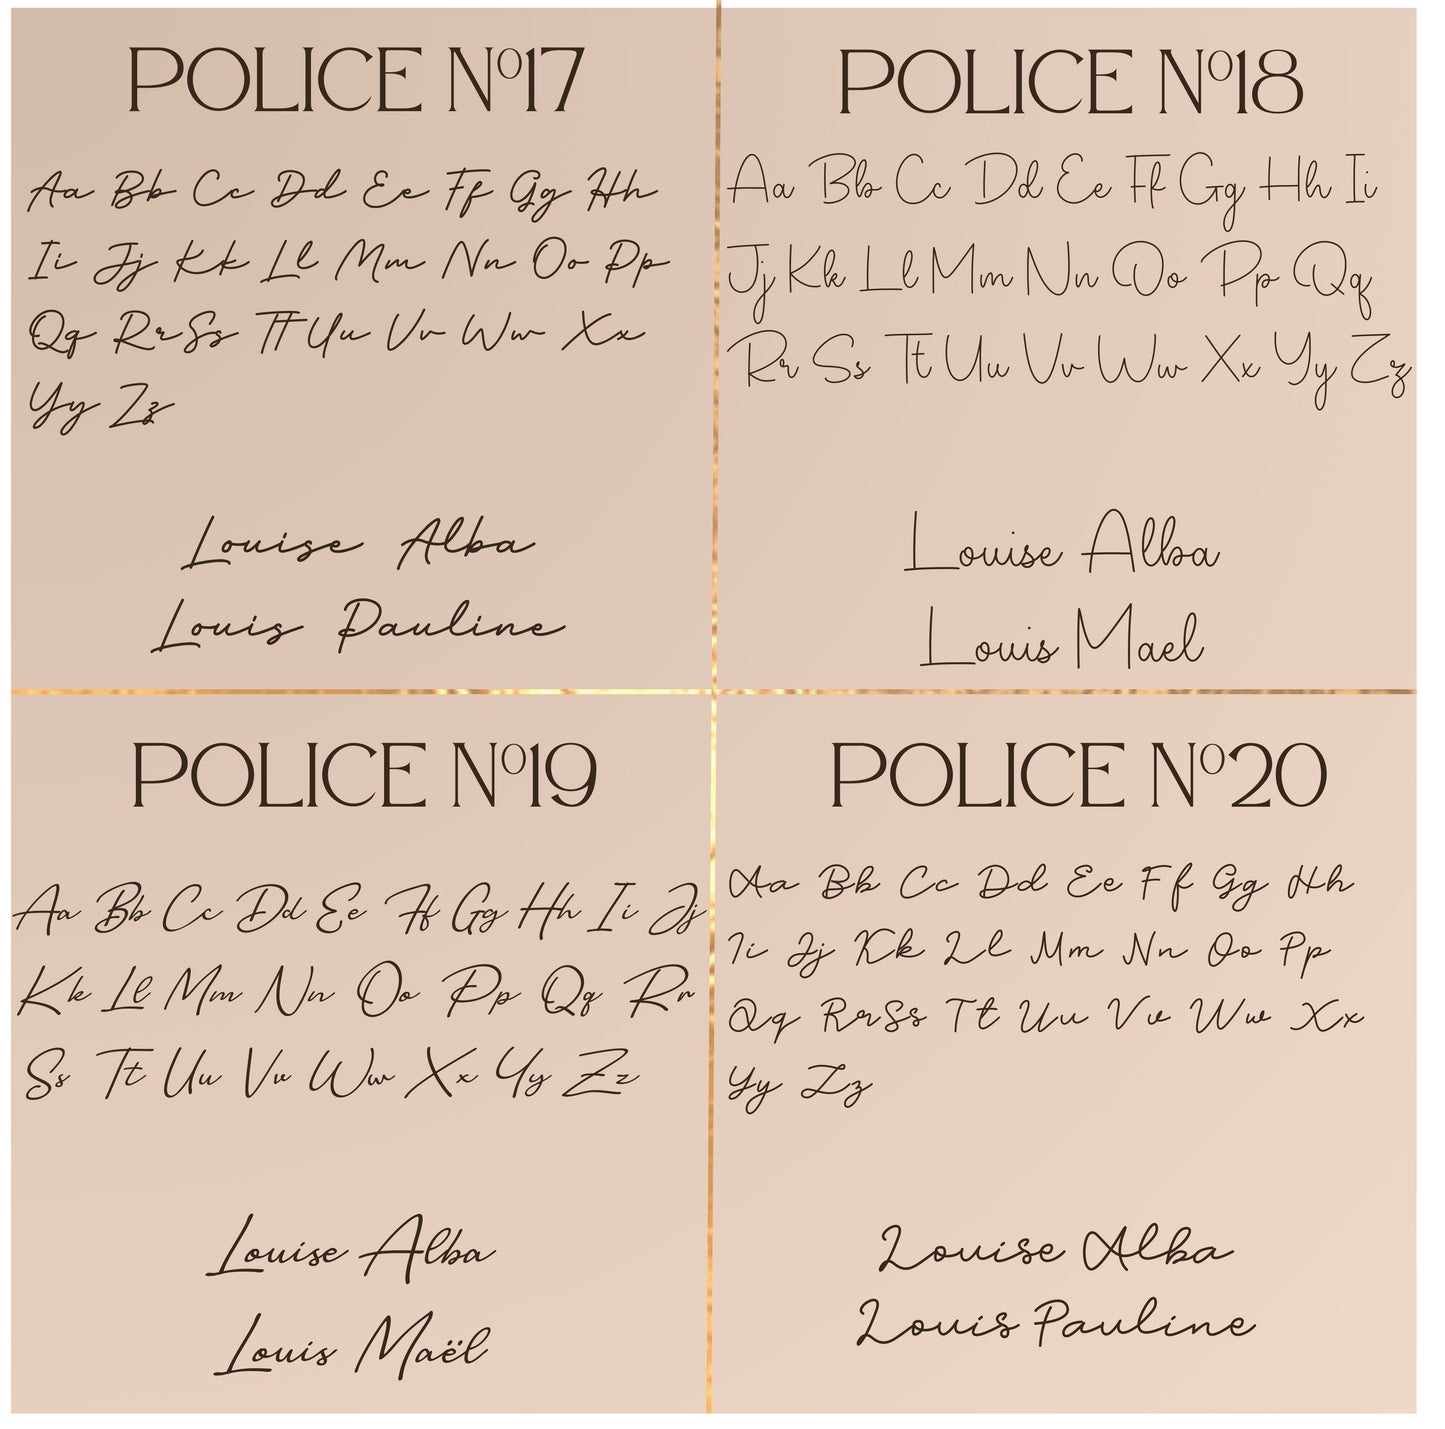 POLICE Nº17
Aa Bb Cc Dd Ee Ff Gg Hh
Ii Jj Kk Ll Mm Nn Oo Pp
Qq Rr Ss Tt Uu Vv Ww Xx
Yy Zz
Louise Alba
Louis Pauline
POLICE Nº18
Aa Bb Cc Dd Ee Ff Gg Hh Ii
Jj Kk Ll Mm Nn Oo Pp Qq
Rr Ss Tt Uu Vv Ww Xx Yy Zz
Louise Alba
Louis Mael
POLICE Nº19
Aa Bb Cc Dd Ee Ff Gg Hh Ii Jj
Kk Ll Mm Nn Oo Pp Qq Rr
Ss Tt Uu Vv Ww Xx Yy Zz
Louise Alba
Louis Maël
POLICE Nº20
Aa Bb Cc Dd Ee Ff Gg Hh
Ii Jj Kk Ll Mm Nn Oo Pp
Qq Rr Ss Tt Uu Vv Ww Xx
Yy Zz
Louise Alba
Louis Pauline